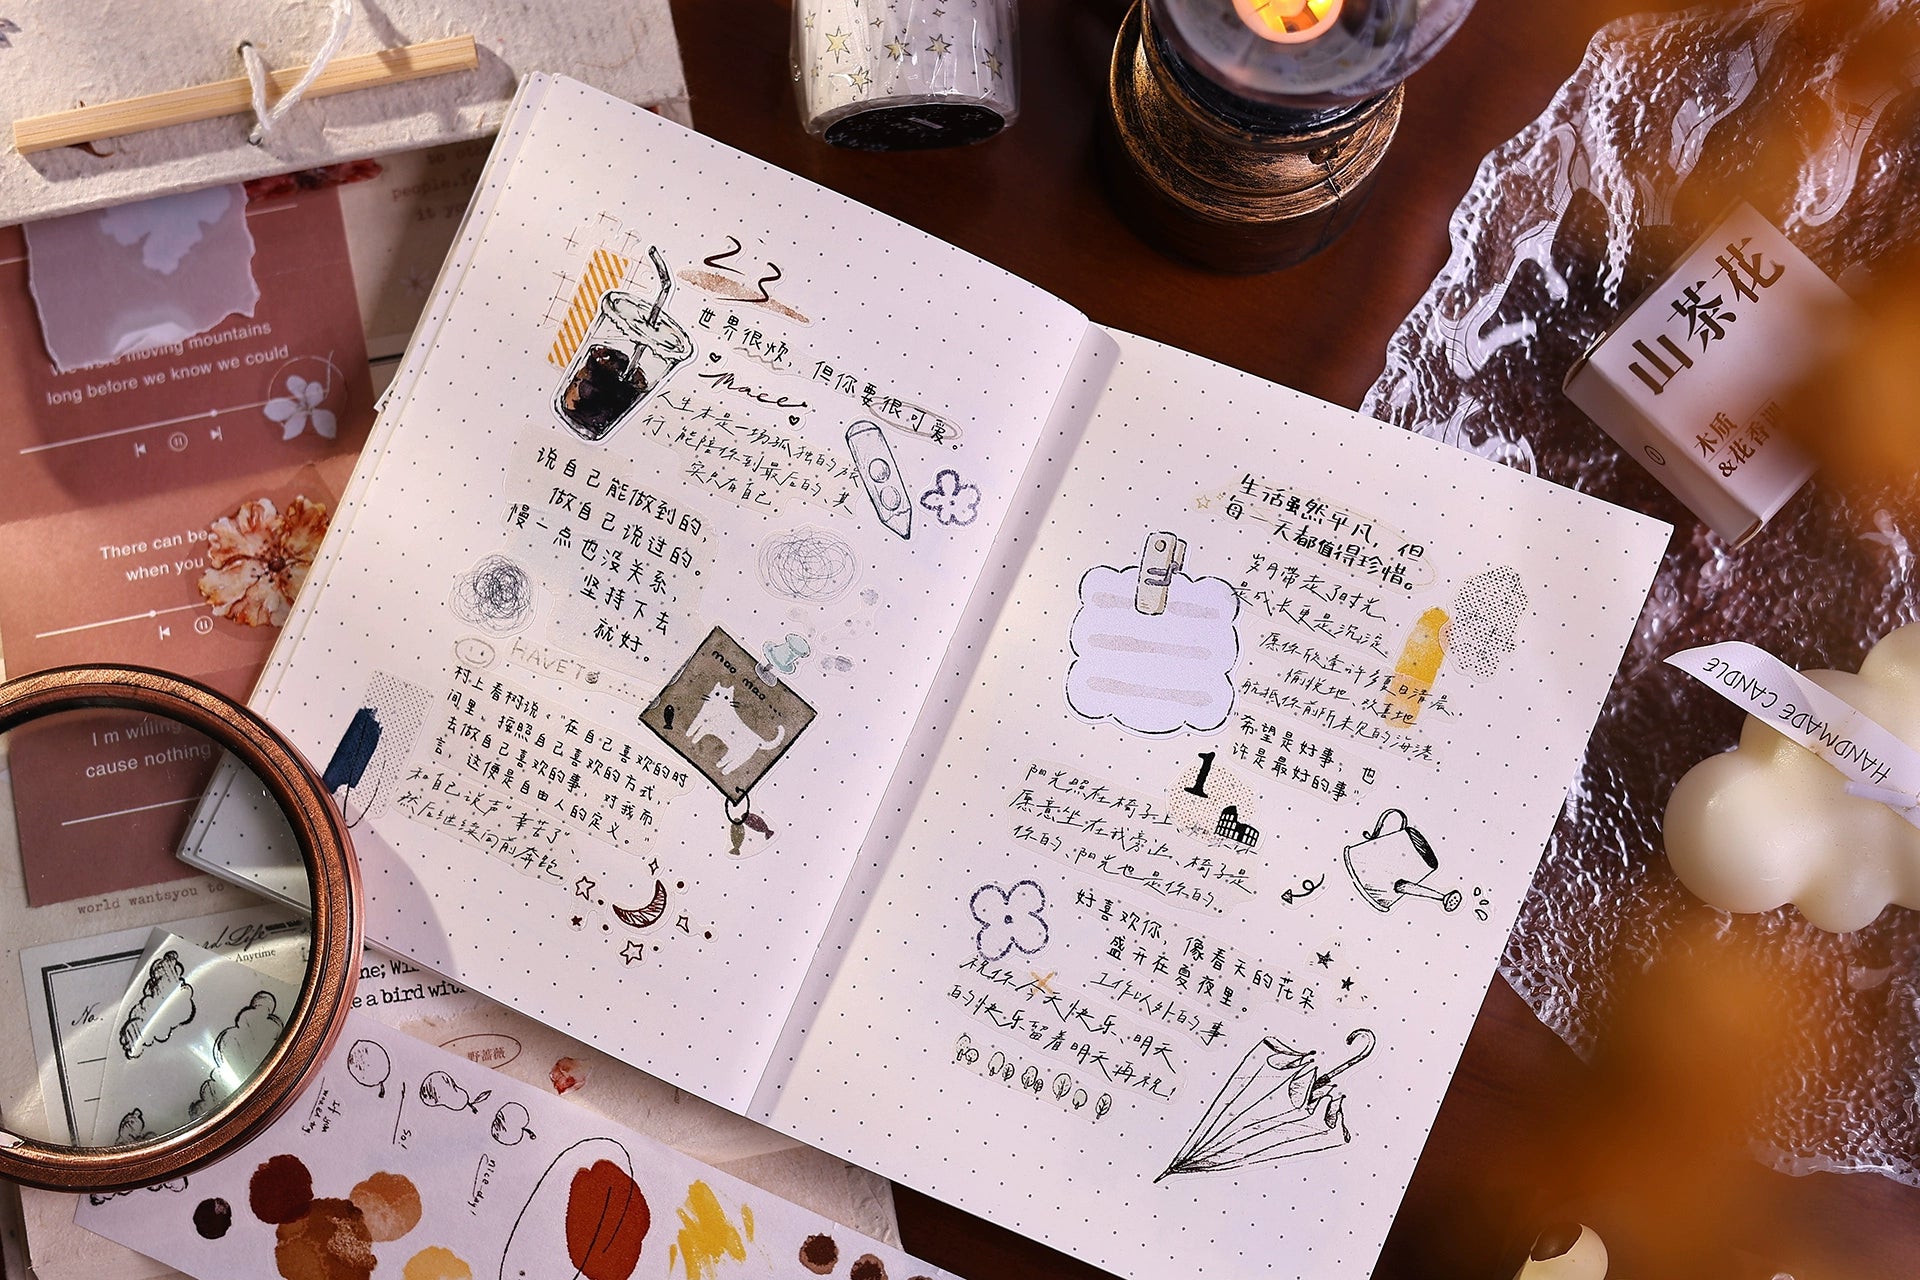 people.
it
moving mountains
long before we know we could
There can be
when you
I m willing
cause nothing
world wantsyou to
Anytime
No.
a bird with
野蔷薇
If you
So!
nice day!
23
世界很烦，但你要很可爱。
人生本是一场孤独的旅
行、能陪你到最后的、其
实只有自己。
说自己能做到的，
做自己说过的。
慢一点也没关系，
坚持下去
就好。
HAVE
moo moo
村上春树说。“在自己喜欢的时
间里。按照自己喜欢的方式，
去做自己喜欢的事。对我而
言，这便是自由人的定义。”
和自己说声“幸苦了”、
然后继续向前奔跑
生活虽然平凡，但
每一天都值得珍惜。
岁月带走了时光
是成长更是沉淀
愿你欣逢许多夏日清晨、
愉悦地、欢喜地
航抵你前所未见的海港。
“希望是好事；也
许是最好的事”
1
阳光照在椅子上、
愿意坐在我旁边、椅子是
你的、阳光也是你的。
好喜欢你，像春天的花朵
盛开在夏夜里。
祝你今天快乐、明天
的快乐留着明天再祝！
工作以外的事
山茶花
木质
&花香调
HANDMADE CANDLE